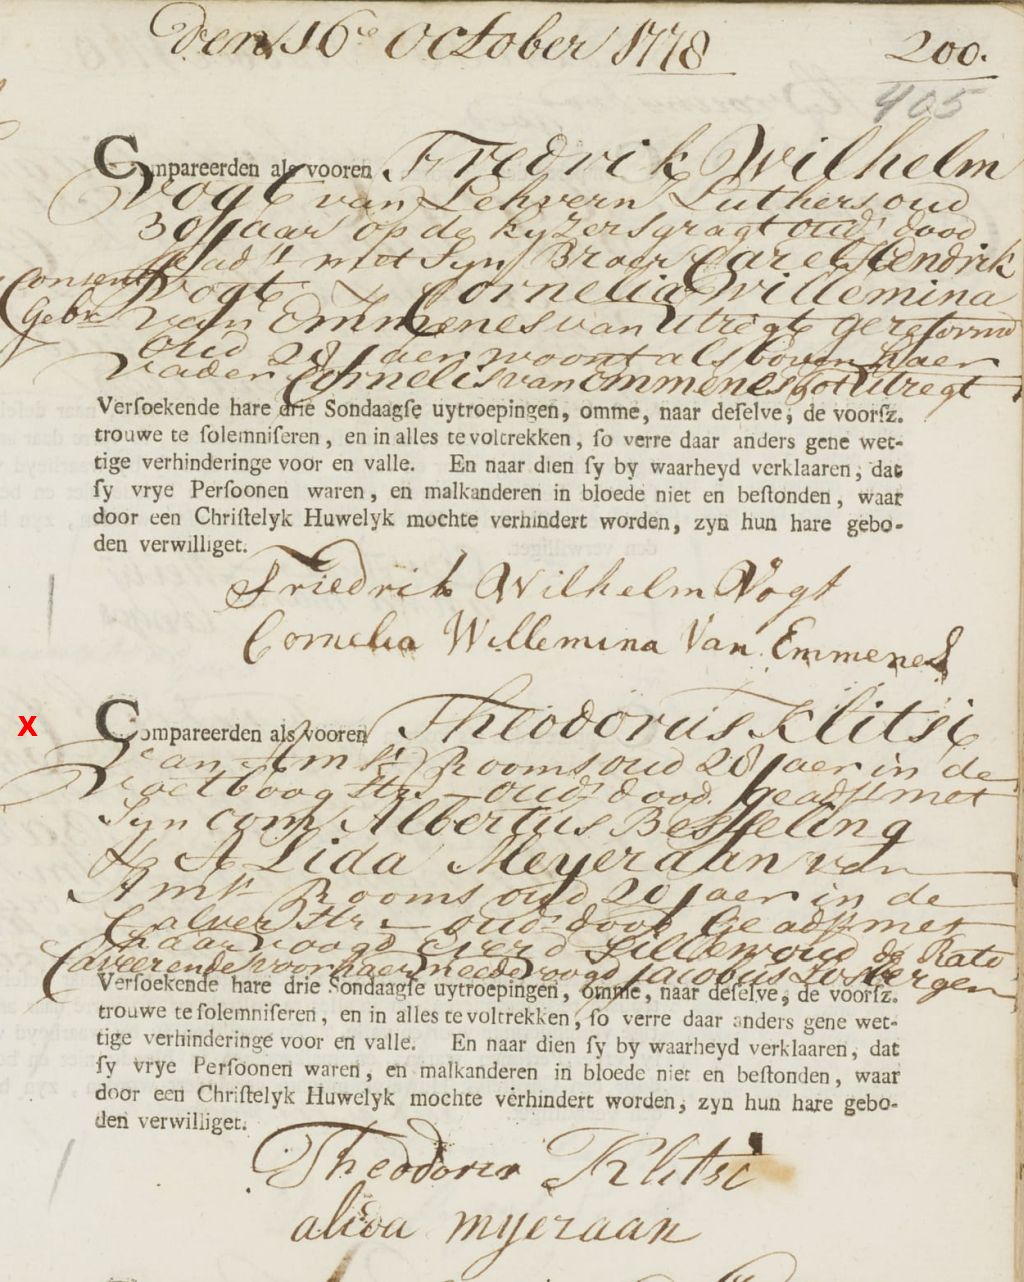 den 16e October 1778
200.
405
Compareerden als vooren Fredrik Wilhelm
Vogt van Lehvern Luthers oud
30 Jaar op de kyzersgragt oud.s dood
geadst. met Syn Broer Carel Hendrik
Consent Vogt & Cornelia Willemina
Gebr. van Emmenes van Utregt gereformd
oud 28 Jaer woont als boven haer
Vader Cornelis van Emmenes tot Utregt
Verſoekende hare drie Sondaagſe uytroepingen, omme, naar deſelve, de voorſz.
trouwe te ſolemniſeren, en in alles te voltrekken, ſo verre daar anders gene wet-
tige verhinderinge voor en valle. En naar dien ſy by waarheyd verklaaren, dat
ſy vrye Perſoonen waren, en malkanderen in bloede niet en beſtonden, waar
door een Chriſtelyk Huwelyk mochte verhindert worden, zyn hun hare gebo-
den verwilliget.
Friedrich Wilhelm Vogt
Cornelia Willemina Van Emmenes
X
Compareerden als vooren Theodorus Klitsi
van Amst. Rooms oud 28 Jaer in de
Voetboog str. oud.s dood geadst. met
Syn oom Albertus Besseling
& Alida Meyeraan van
Amst. Rooms oud 20 Jaer in de
Calver str. oud.s dood Geadst. met
haar voogd Everd Lillewoud de Rato
Caveerende voor haer meede voogd Jacobus Losbergen
Verſoekende hare drie Sondaagſe uytroepingen, omme, naar deſelve, de voorſz.
trouwe te ſolemniſeren, en in alles te voltrekken, ſo verre daar anders gene wet-
tige verhinderinge voor en valle. En naar dien ſy by waarheyd verklaaren, dat
ſy vrye Perſoonen waren, en malkanderen in bloede niet en beſtonden, waar
door een Chriſtelyk Huwelyk mochte verhindert worden, zyn hun hare gebo-
den verwilliget.
Theodorus Klitsi
alida myeraan